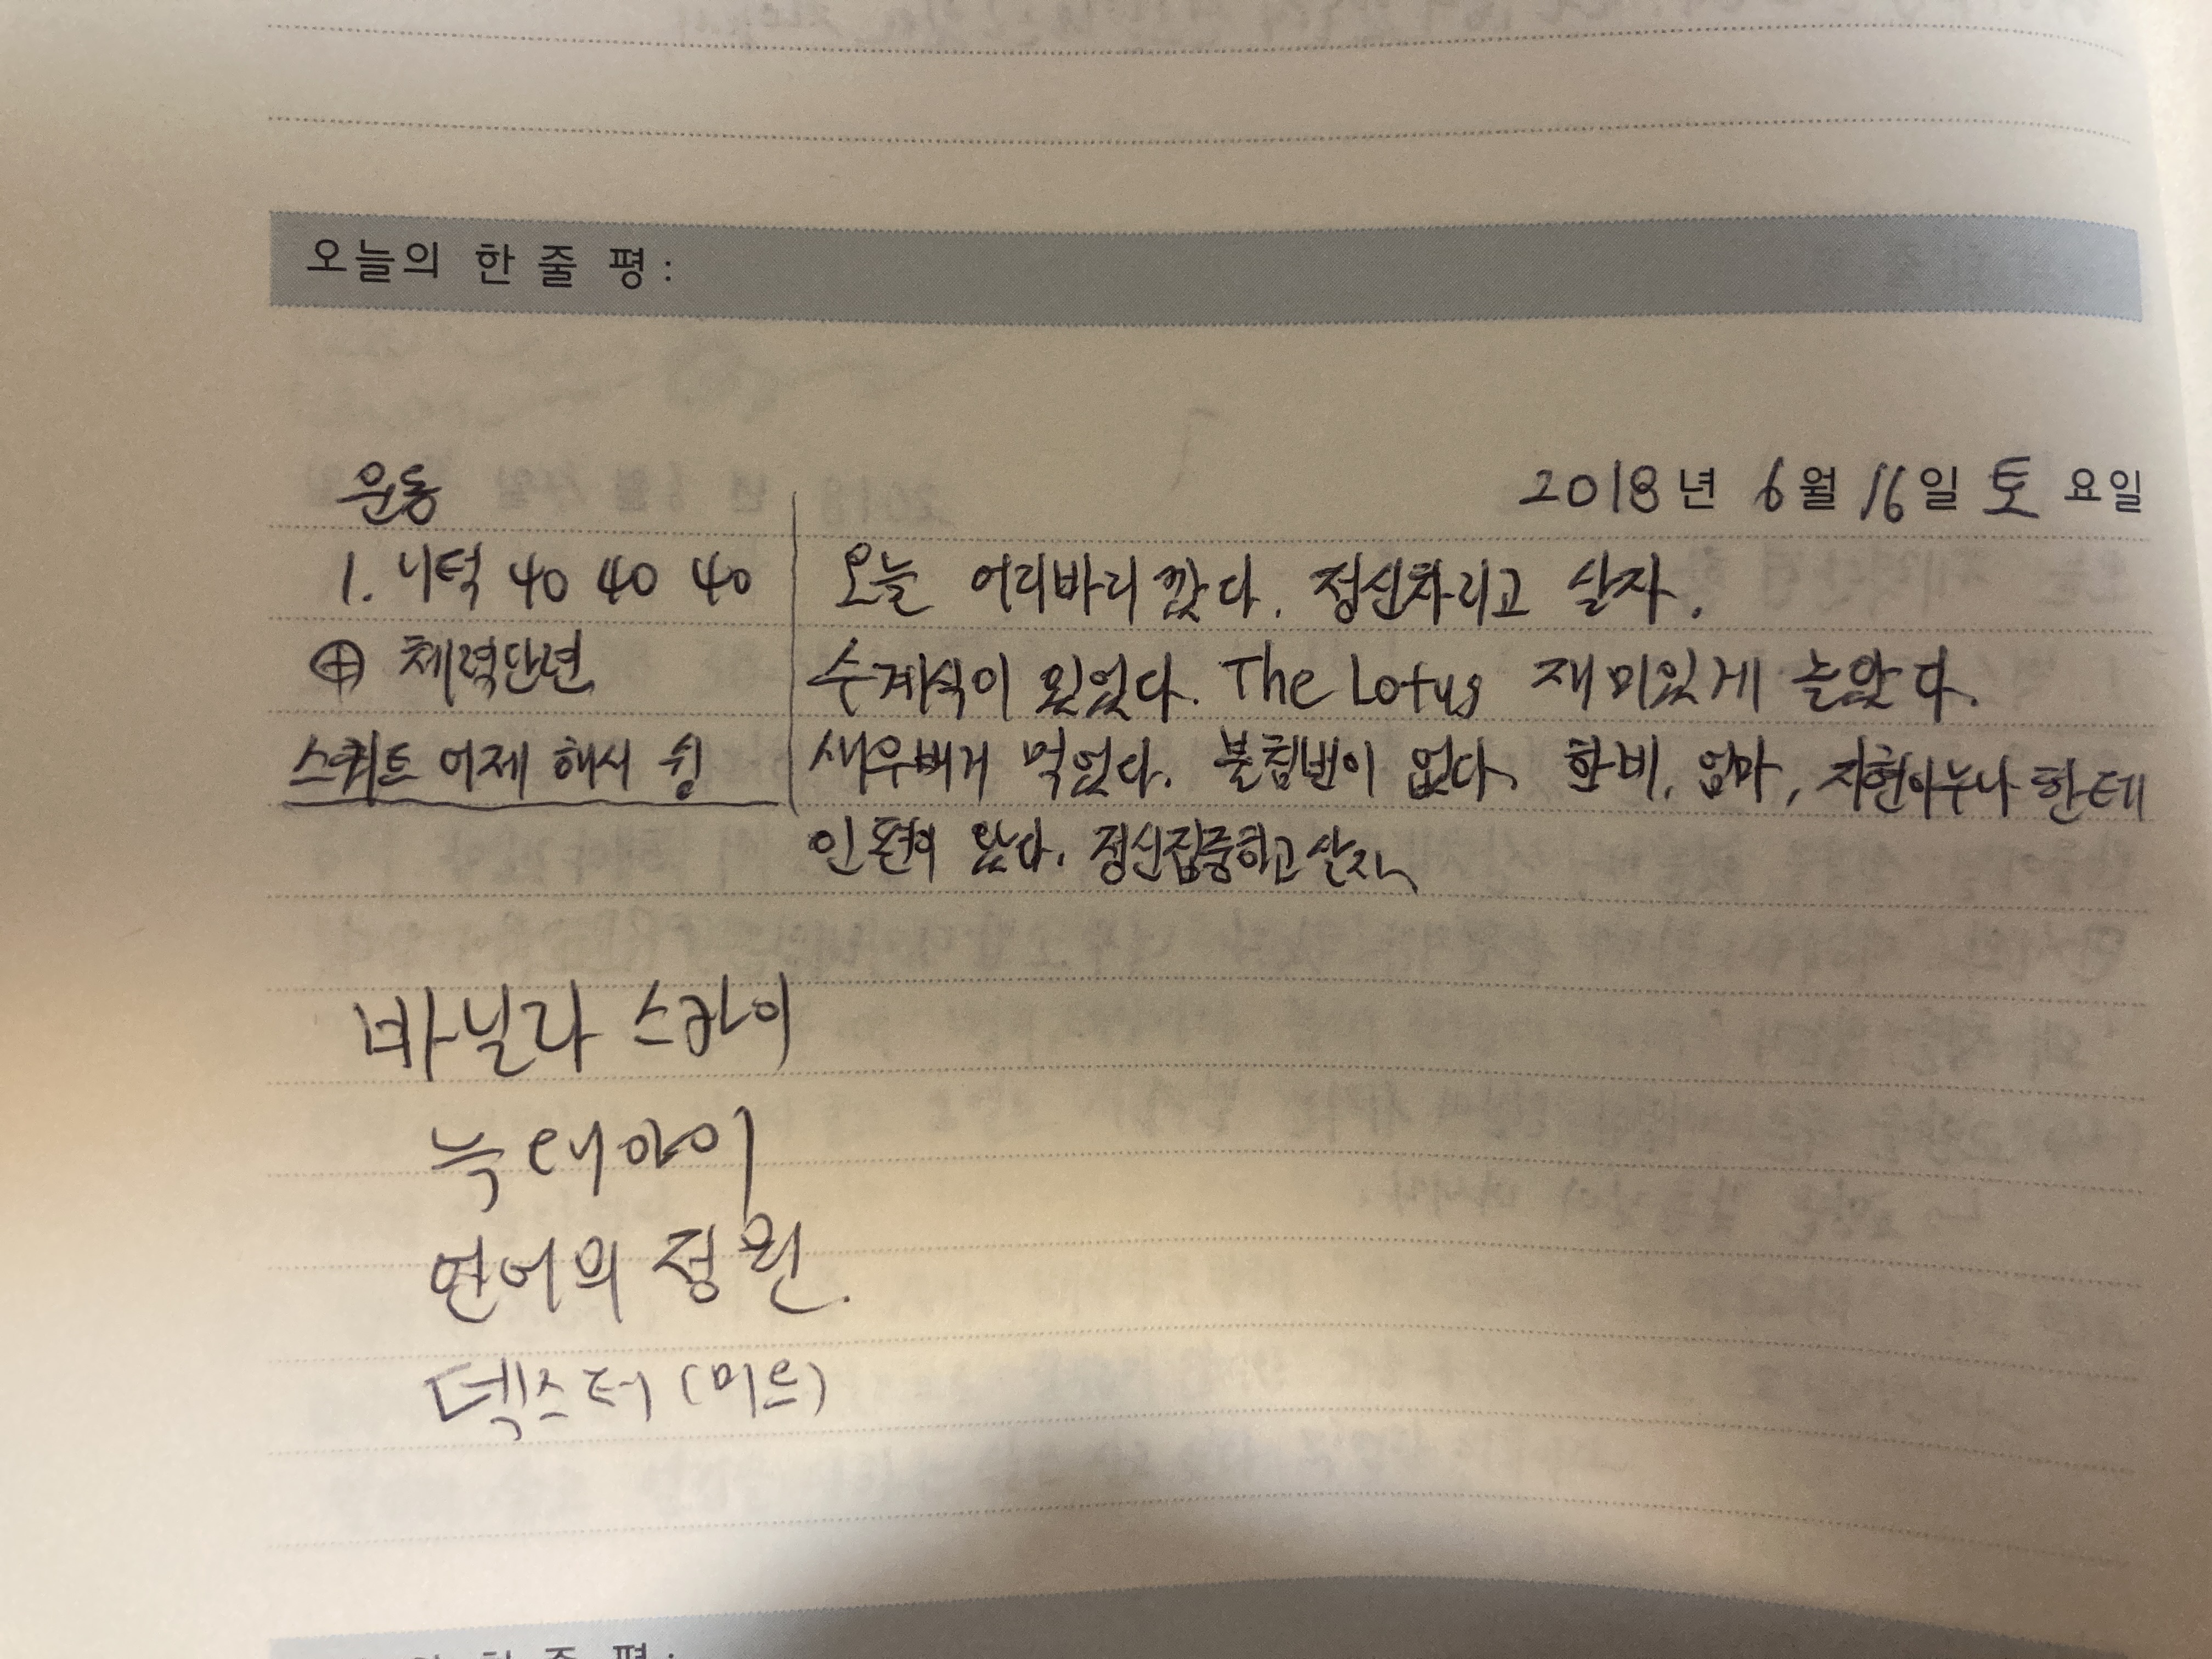 오늘의 한 줄 평 :
2018년 6월 16일 토 요일
운동
1. 니턱 40 40 40
⊕ 체력단련
스쿼트 어제 해서 쉼
오늘 어리바리 깠다. 정신차리고 살자.
수계식이 있었다. The Lotus 재미있게 놀았다.
새우버거 먹었다. 불침번이 없다. 한비, 엄마, 지현이누나한테
인편이 왔다. 정신집중하고 살자.
바닐라 스카이
늑대아이
언어의 정원.
덱스터 (미드)